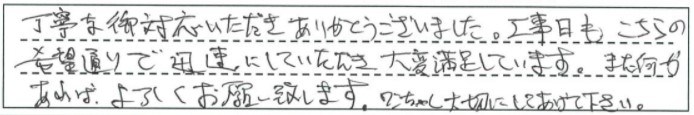 丁寧な御対応いただきありがとうございました。工事日も、こちらの
希望通りで迅速にしていただき大変満足しています。また何か
あれば、よろしくお願い致します。ワンちゃん大切にしてあげて下さい。